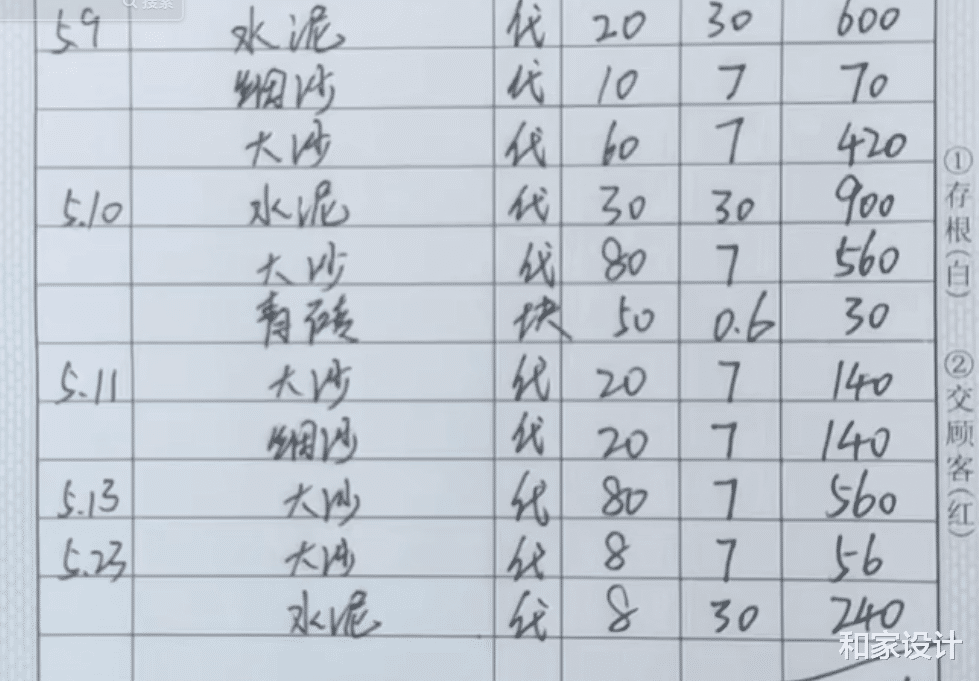 搜索
5.9 水泥 代 20 30 600
细沙 代 10 7 70
大沙 代 60 7 420
5.10 水泥 代 30 30 900
大沙 代 80 7 560
青砖 块 50 0.6 30
5.11 大沙 代 20 7 140
细沙 代 20 7 140
5.13 大沙 代 80 7 560
5.23 大沙 代 8 7 56
水泥 代 8 30 240
①存根(白) ②交顾客(红)
和家设计